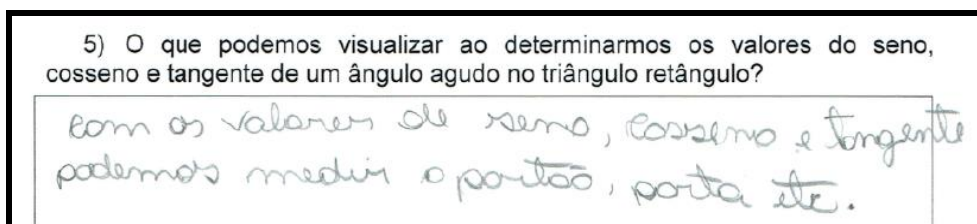 5) O que podemos visualizar ao determinarmos os valores do seno,
cosseno e tangente de um ângulo agudo no triângulo retângulo?
com os valores de seno, cosseno e tangente
podemos medir o portão, porta etc.